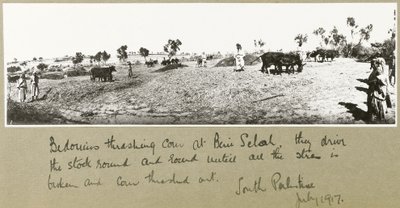 Bedouins thrashing Corn at Beni Selah, they drive
the stock round and round until all the straw is
broken and corn thrashed out. South Palestine
July, 1917.